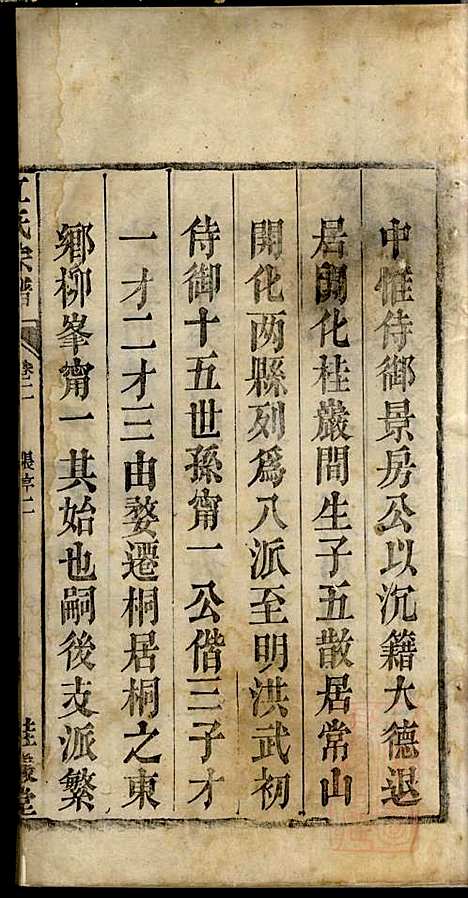 中惟侍御景房公以沉籍大德退
居開化桂巖間生子五散居常山
開化两縣列爲八派至明洪武初
侍御十五世孫甯一公偕三子才
一才二才三由婺遷桐居桐之東
鄉柳峯甯一其始也嗣後支派繁
江氏宗譜 卷二 張序二 桂巖堂